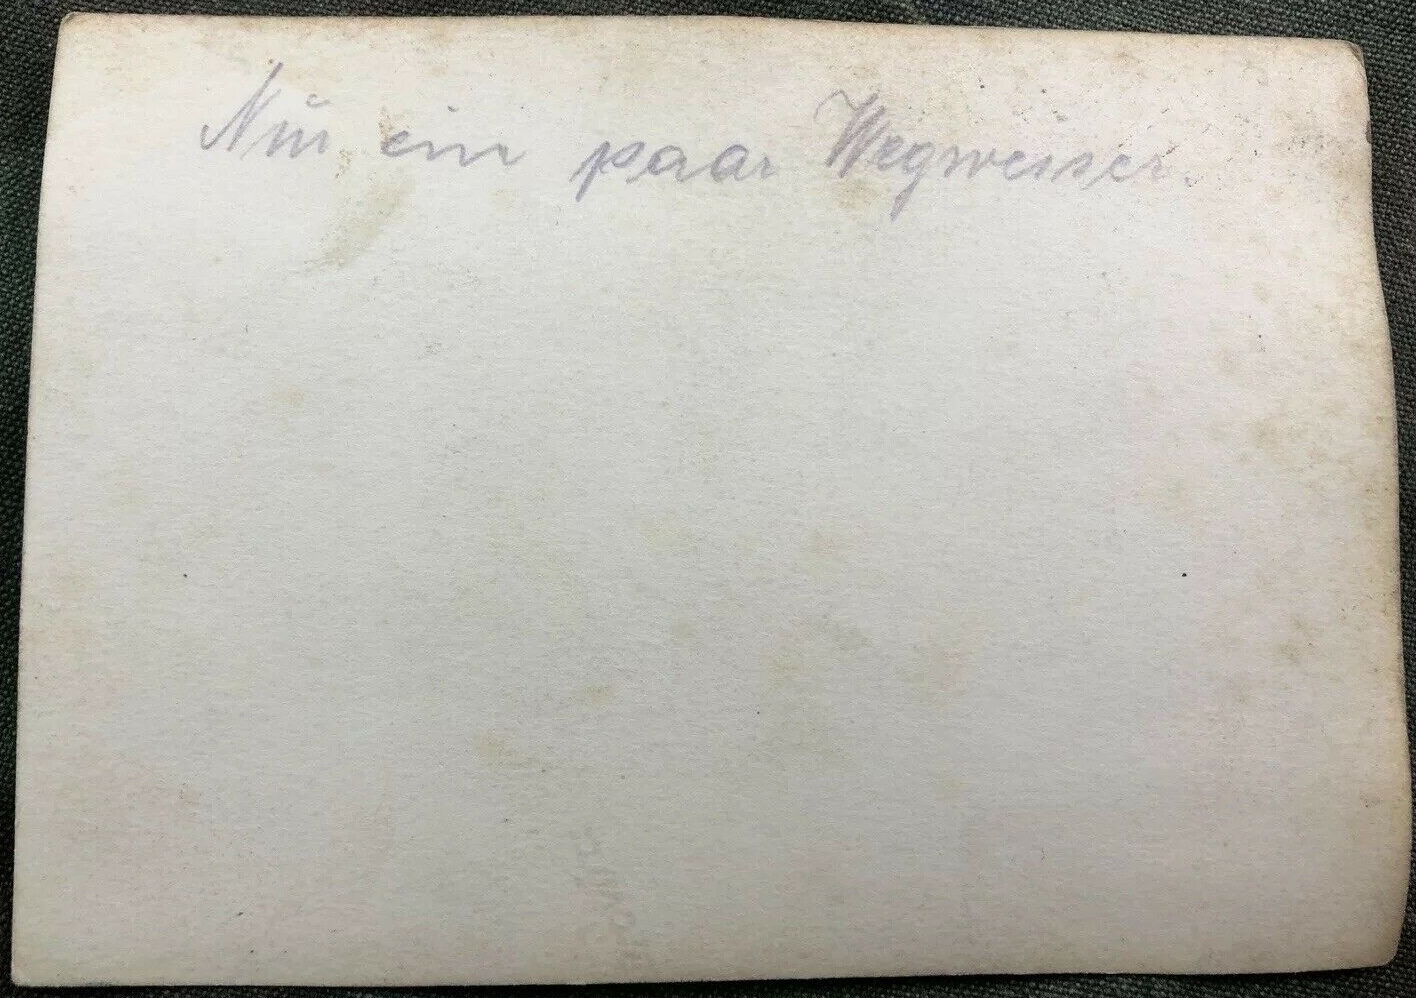 Nur ein paar Wegweiser.